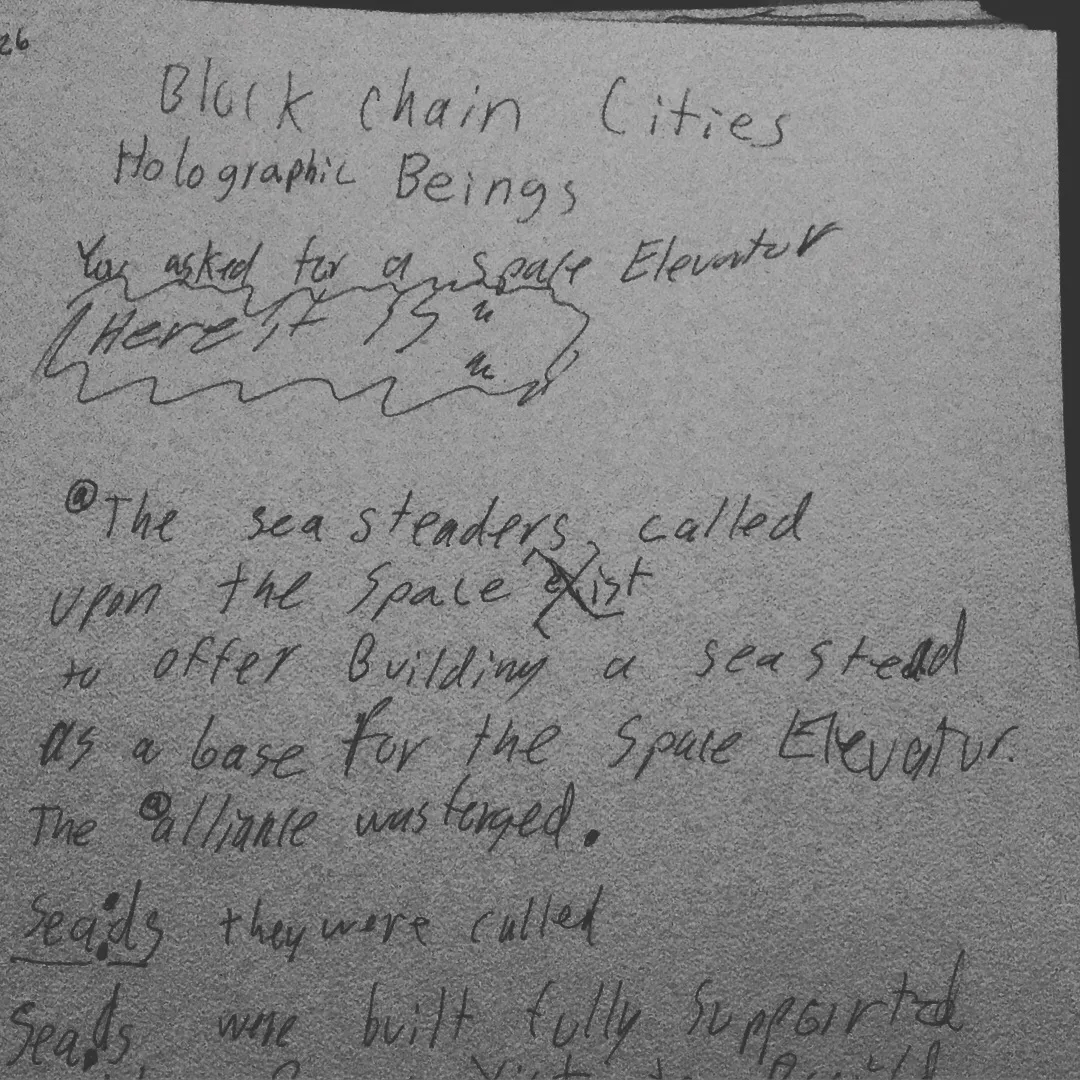 26
Block chain Cities
Holographic Beings
You asked for a space Elevator
Here it is
@The sea steaders, called
upon the Space Xist
to offer Building a seastead
as a base for the Space Elevator.
The @alliance was forged.
Sea:ds they were called
Sea.ds were built fully supported
to Build